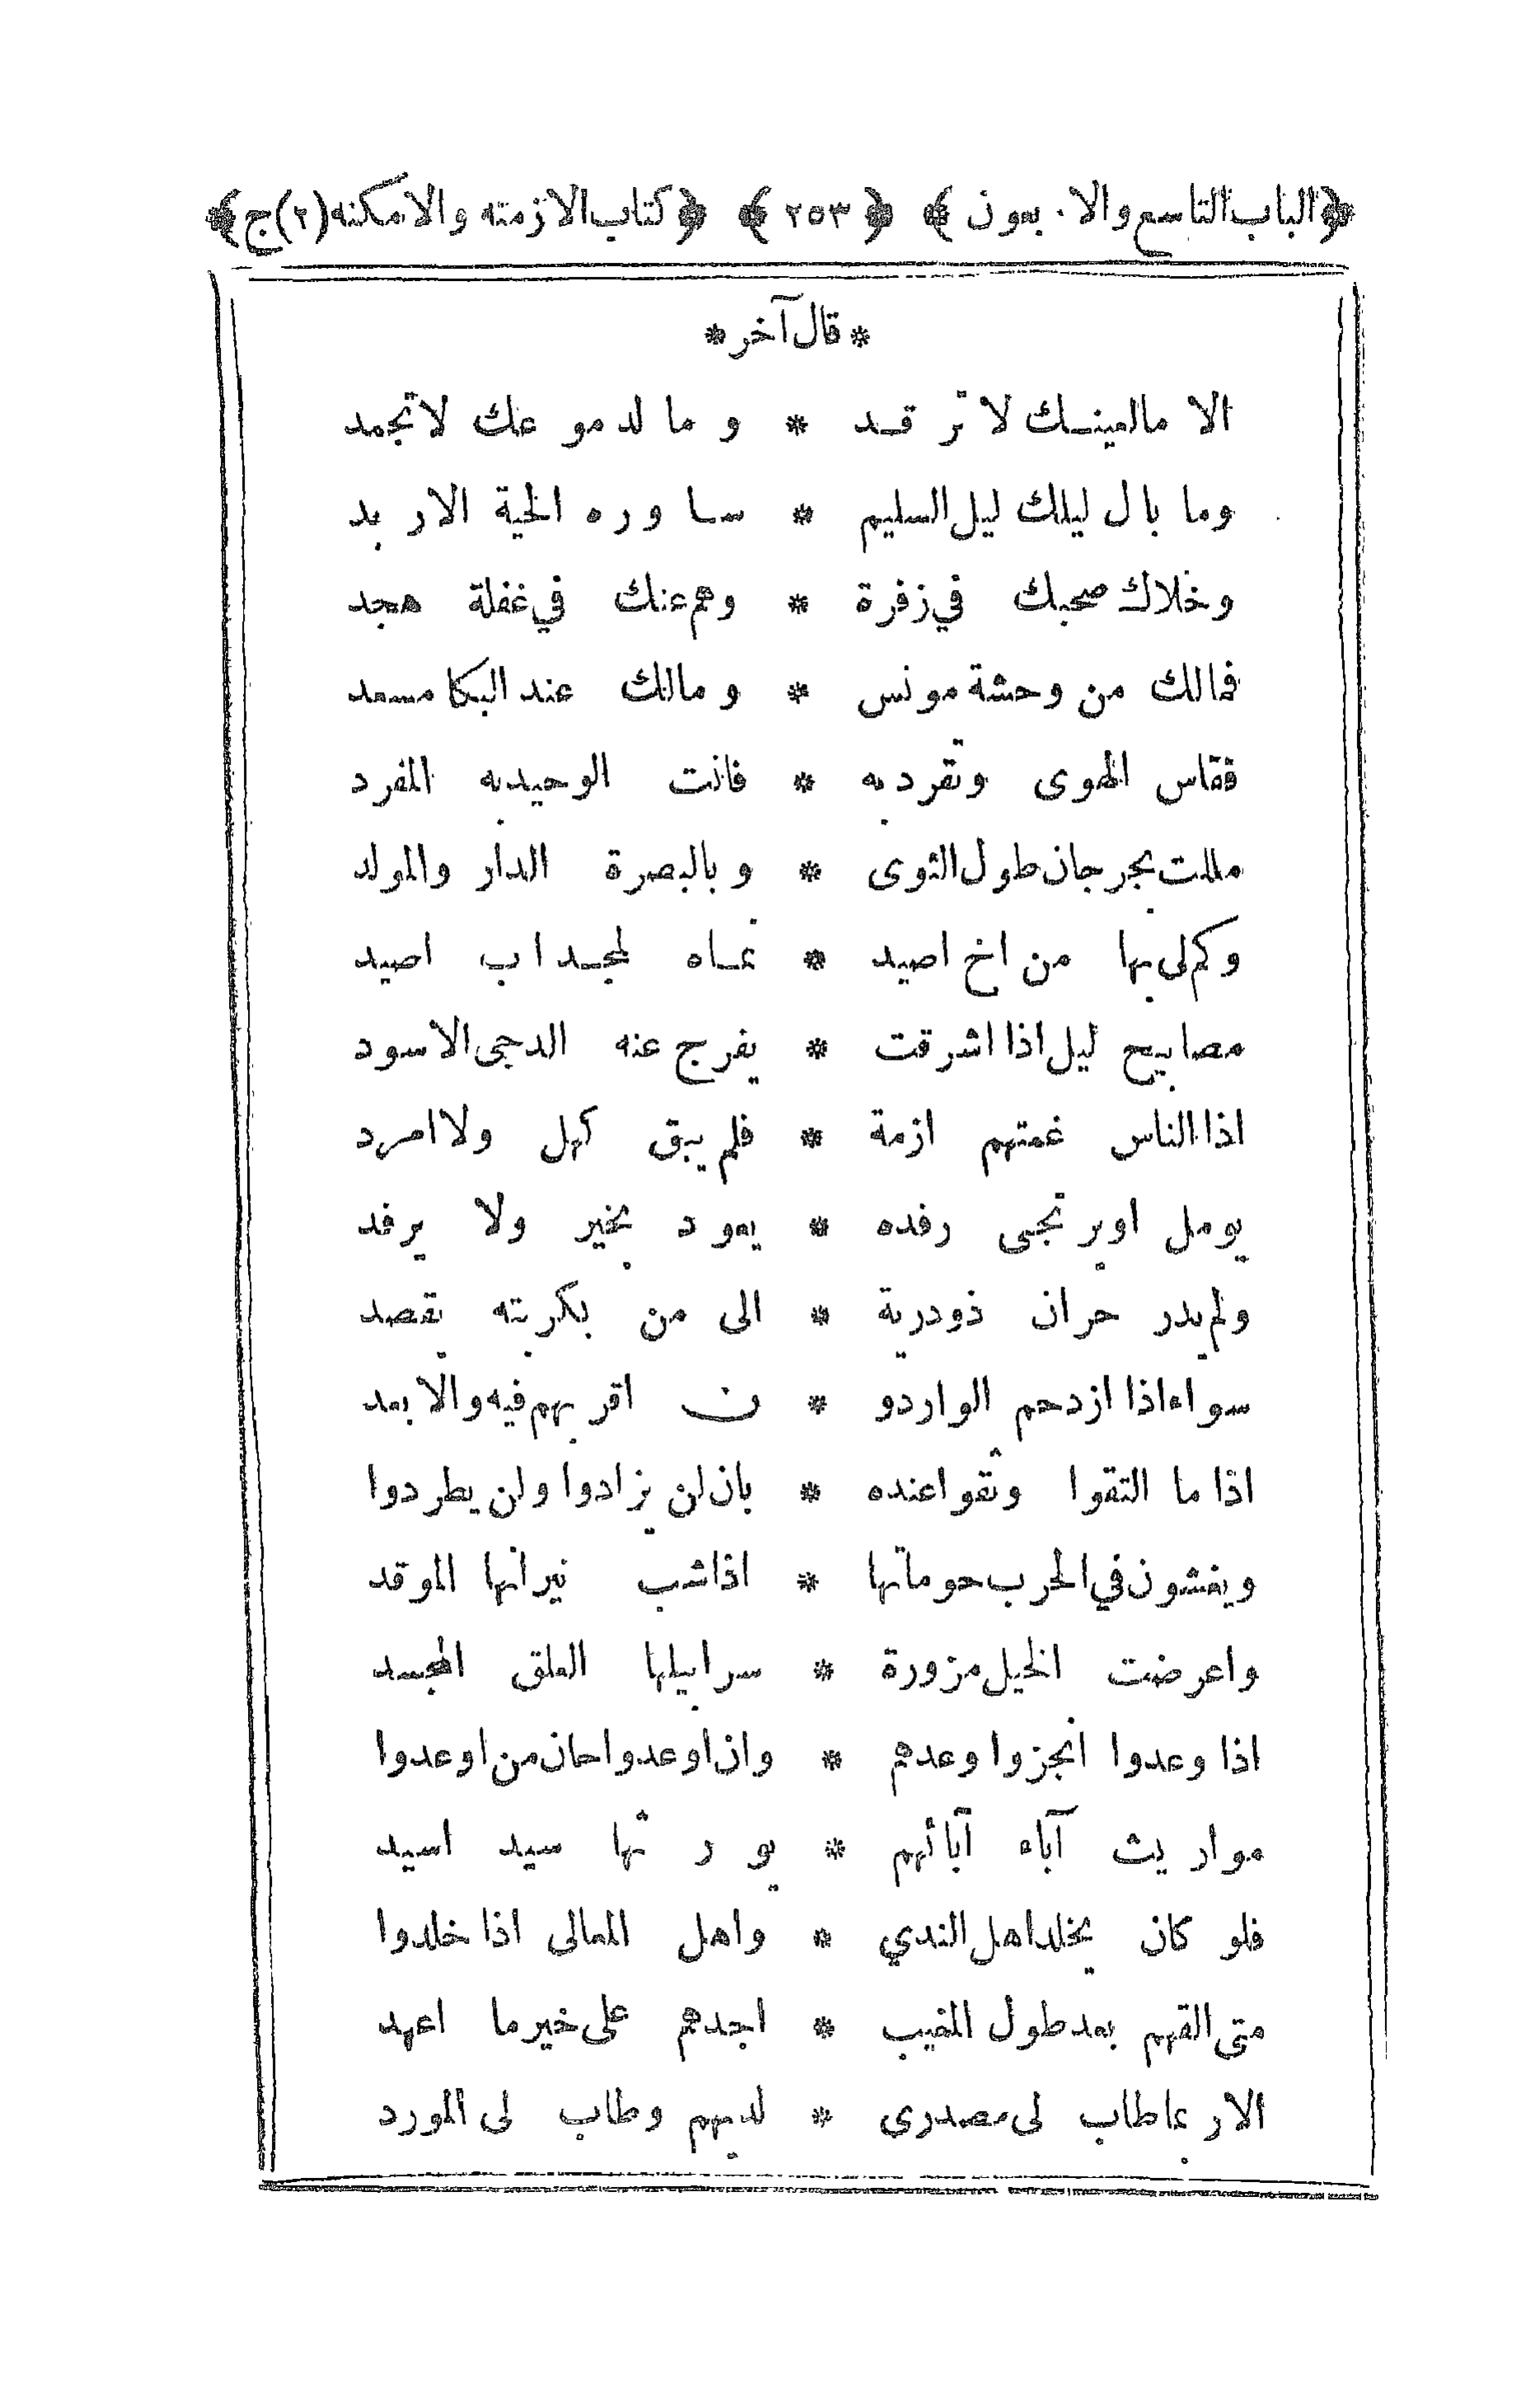 ﴿الباب التاسع والاربعون﴾ ﴿٢٥٣﴾ ﴿كتاب الازمته والامكنه (٢) ج﴾
* قال آخر *
الا مالعينك لا ترقد * وما لدموعك لاتجمد
وما بال ليلك ليل السليم * ساوره الحية الاربد
وخلاك صحبك في زفرة * وهم عنك في غفلة هجد
فمالك من وحشة مونس * ومالك عند البكا مسعد
فقاس الهوى وتفرد به * فانت الوحيد به المفرد
مللت بجرجان طول الثوى * وبالبصرة الدار والمولد
وكم لى بها من اخ اصيد * نماه لمجد اب اصيد
مصابيح ليل اذا اشرقت * يفرج عنه الدجى الاسود
اذا الناس غمتهم ازمة * فلم يبق كهل ولا امرد
يومل اويرتجى رفده * يعود بخير ولا يرفد
ولم يدر حران ذودرية * الى من بكربته يقصد
سواء اذا ازدحم الواردو * ن اقربهم فيه والابعد
اذا ما التقوا وثقوا عنده * بان لن يزادوا ولن يطردوا
ويغشون في الحرب حوماتها * اذا شب نيرانها الموقد
واعرضت الخيل مزورة * سرابيلها العلق المجسد
اذا وعدوا انجزوا وعدهم * وان اوعدوا حان من اوعدوا
مواريث آباء آبائهم * يورثها سيد اسيد
فلو كان يخلد اهل الندي * واهل المعالى اذا خلدوا
متى القهم بعد طول المغيب * اجدهم على خير ما اعهد
الا ربما طاب لى مصدرى * لديهم وطاب لى المورد